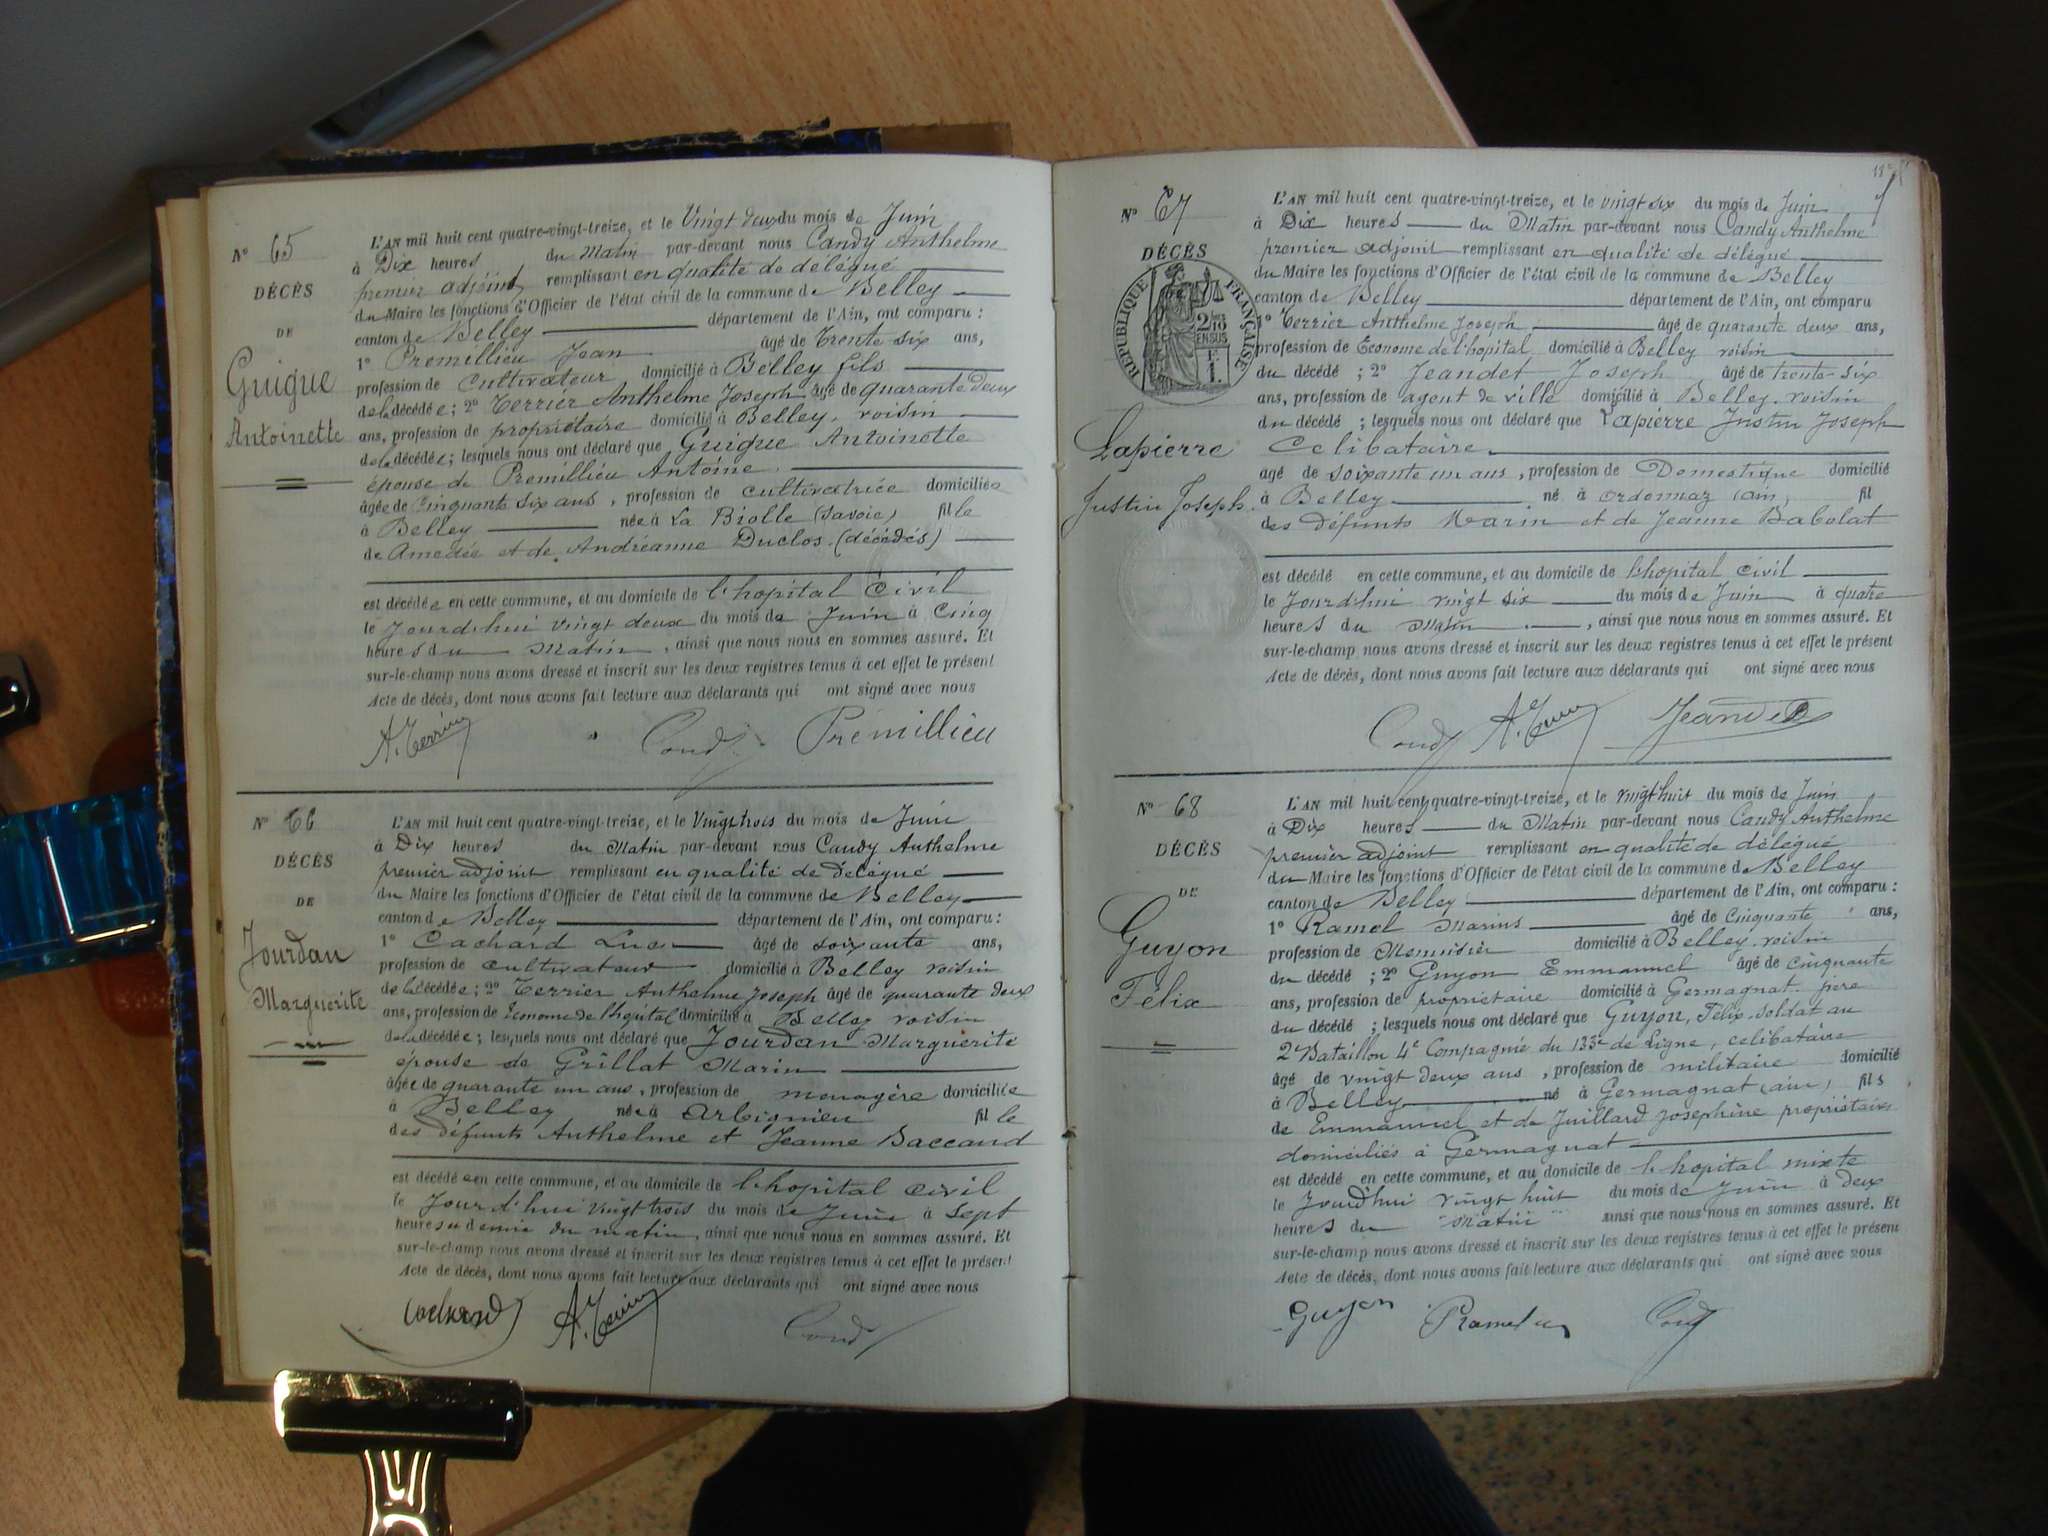 N° 65
DÉCÈS
DE
Guigue
Antoinette
L'AN mil huit cent quatre-vingt-treize, et le Vingt deux du mois de Juin
à Dix heures du Matin par-devant nous Candy Anthelme
premier adjoint remplissant en qualité de délégué
du Maire les fonctions d'Officier de l'état civil de la commune de Belley
canton de Belley département de l'Ain, ont comparu :
1° Premillieu Jean âgé de trente six ans,
profession de cultivateur domicilié à Belley fils
de la décédée ; 2° Terrier Anthelme Joseph âgé de quarante deux
ans, profession de propriétaire domicilié à Belley, voisin
de la décédée ; lesquels nous ont déclaré que Guigue Antoinette
épouse de Premillieu Antoine
âgée de Cinquante six ans, profession de cultivatrice domiciliée
à Belley née à La Biolle (Savoie) fille
de Amedée et de Andréanne Duclos (décédés)
est décédée en cette commune, et au domicile de l'hopital Civil
le Jourd'hui vingt deux du mois de Juin à Cinq
heures du Matin, ainsi que nous nous en sommes assuré. Et
sur-le-champ nous avons dressé et inscrit sur les deux registres tenus à cet effet le présent
Acte de décès, dont nous avons fait lecture aux déclarants qui ont signé avec nous
A. Terrier Candy Premillieu
N° 66
DÉCÈS
DE
Jourdan
Marguerite
L'AN mil huit cent quatre-vingt-treize, et le Vingt trois du mois de Juin
à Dix heures du Matin par-devant nous Candy Anthelme
premier adjoint remplissant en qualité de délégué
du Maire les fonctions d'Officier de l'état civil de la commune de Belley
canton de Belley département de l'Ain, ont comparu :
1° Cachard Luc âgé de soixante ans,
profession de cultivateur domicilié à Belley voisin
de la décédée ; 2° Terrier Anthelme Joseph âgé de quarante deux
ans, profession de Econome de l'hopital domicilié à Belley voisin
de la décédée ; lesquels nous ont déclaré que Jourdan Marguerite
épouse de Grillat Marin
âgée de quarante un ans, profession de menagère domiciliée
à Belley née à Arbignieu fille
des défunts Anthelme et Jeanne Baccard
est décédée en cette commune, et au domicile de l'hopital civil
le Jourd'hui vingt trois du mois de Juin à Sept
heures et demie du matin, ainsi que nous nous en sommes assuré. Et
sur-le-champ nous avons dressé et inscrit sur les deux registres tenus à cet effet le présent
Acte de décès, dont nous avons fait lecture aux déclarants qui ont signé avec nous
Cachard A. Terrier Candy
N° 67
DÉCÈS
RÉPUBLIQUE FRANÇAISE
2/10
EN SUS
Lapierre
Justin Joseph
L'AN mil huit cent quatre-vingt-treize, et le vingt six du mois de Juin
à Dix heures du Matin par-devant nous Candy Anthelme
premier adjoint remplissant en qualité de délégué
du Maire les fonctions d'Officier de l'état civil de la commune de Belley
canton de Belley département de l'Ain, ont comparu
1° Terrier Anthelme Joseph âgé de quarante deux ans,
profession de Econome de l'hopital domicilié à Belley voisin
du décédé ; 2° Jeandet Joseph âgé de trente-six
ans, profession de agent de ville domicilié à Belley. voisin
du décédé ; lesquels nous ont déclaré que Lapierre Justin Joseph
Celibataire
agé de soixante un ans, profession de Domestique domicilié
à Belley né à Ordonnaz (ain) fil
des défunts Marin et de Jeanne Babolat
est décédé en cette commune, et au domicile de l'hopital civil
le Jourd'hui vingt six du mois de Juin à quatre
heures du Matin, ainsi que nous nous en sommes assuré. Et
sur-le-champ nous avons dressé et inscrit sur les deux registres tenus à cet effet le présent
Acte de décès, dont nous avons fait lecture aux déclarants qui ont signé avec nous
Candy A. Terrier Jeandet
N° 68
DÉCÈS
DE
Guyon
Félix
L'AN mil huit cent quatre-vingt-treize, et le vingt huit du mois de Juin
à Dix heures du Matin par-devant nous Candy Anthelme
premier adjoint remplissant en qualité de délégué
du Maire les fonctions d'Officier de l'état civil de la commune de Belley
canton de Belley département de l'Ain, ont comparu :
1° Ramel Marius âgé de Cinquante ans,
profession de Menuisier domicilié à Belley. voisin
du décédé ; 2° Guyon Emmanuel âgé de cinquante
ans, profession de propriétaire domicilié à Germagnat. père
du décédé ; lesquels nous ont déclaré que Guyon, Félix. Soldat au
2e Bataillon 4e Compagnie du 133e de Ligne, célibataire
âgé de vingt deux ans, profession de militaire domicilié
à Belley né à Germagnat (ain) fils
de Emmanuel et de Juillard Joséphine propriétaires
domiciliés à Germagnat
est décédé en cette commune, et au domicile de l'hopital mixte
le Jourd'hui vingt huit du mois de Juin à deux
heures du Matin ainsi que nous nous en sommes assuré. Et
sur-le-champ nous avons dressé et inscrit sur les deux registres tenus à cet effet le présent
Acte de décès, dont nous avons fait lecture aux déclarants qui ont signé avec nous
Guyon Ramel Candy